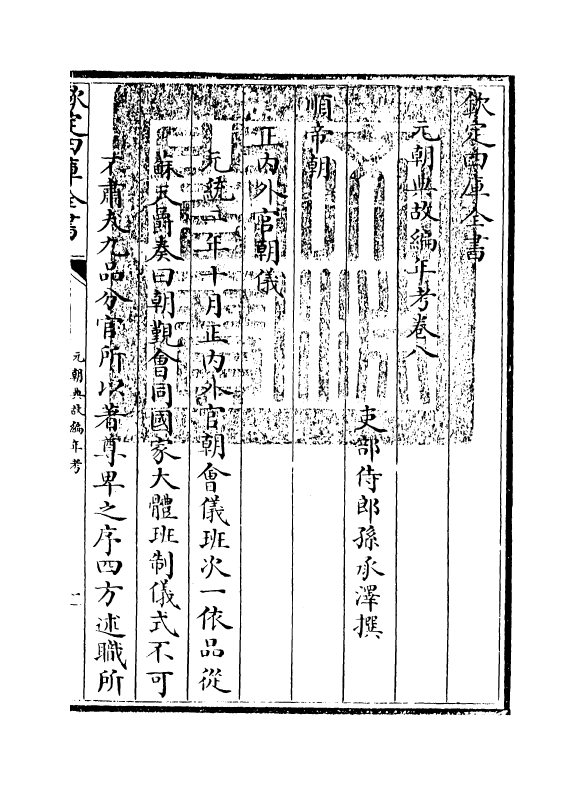 欽定四庫全書
元朝典故編年考卷八
吏部侍郎孫承澤撰
順帝朝
正內外官朝儀
元統二年十月正內外官朝會儀班次一依品從
蘇天爵奏曰朝覲會同國家大體班制儀式不可
不肅夫九品分官所以著尊卑之序四方述職所
欽定四庫全書
元朝典故編年考